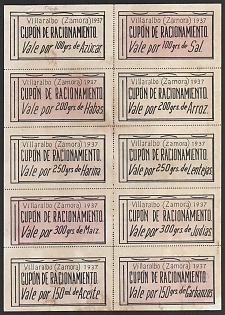 Villaralbo (Zamora) 1937
CUPÓN DE RACIONAMIENTO.
Vale por 100 grs. de Azúcar.
Villaralbo (Zamora) 1937
CUPÓN DE RACIONAMIENTO.
Vale por 100 grs. de Sal.
Villaralbo (Zamora) 1937
CUPÓN DE RACIONAMIENTO.
Vale por 200 grs. de Habas
Villaralbo (Zamora) 1937
CUPÓN DE RACIONAMIENTO.
Vale por 200 grs. de Arroz.
Villaralbo (Zamora) 1937
CUPÓN DE RACIONAMIENTO.
Vale por 250 grs. de Harina
Villaralbo (Zamora) 1937
CUPÓN DE RACIONAMIENTO.
Vale por 250 grs. de Lentejas
Villaralbo (Zamora) 1937
CUPÓN DE RACIONAMIENTO.
Vale por 300 grs. de Maiz.
Villaralbo (Zamora) 1937
CUPÓN DE RACIONAMIENTO.
Vale por 300 grs. de Judias
Villaralbo (Zamora) 1937
CUPÓN DE RACIONAMIENTO.
Vale por 150 ml. de Aceite
Villaralbo (Zamora) 1937
CUPÓN DE RACIONAMIENTO.
Vale por 150 grs. de Garbanzos